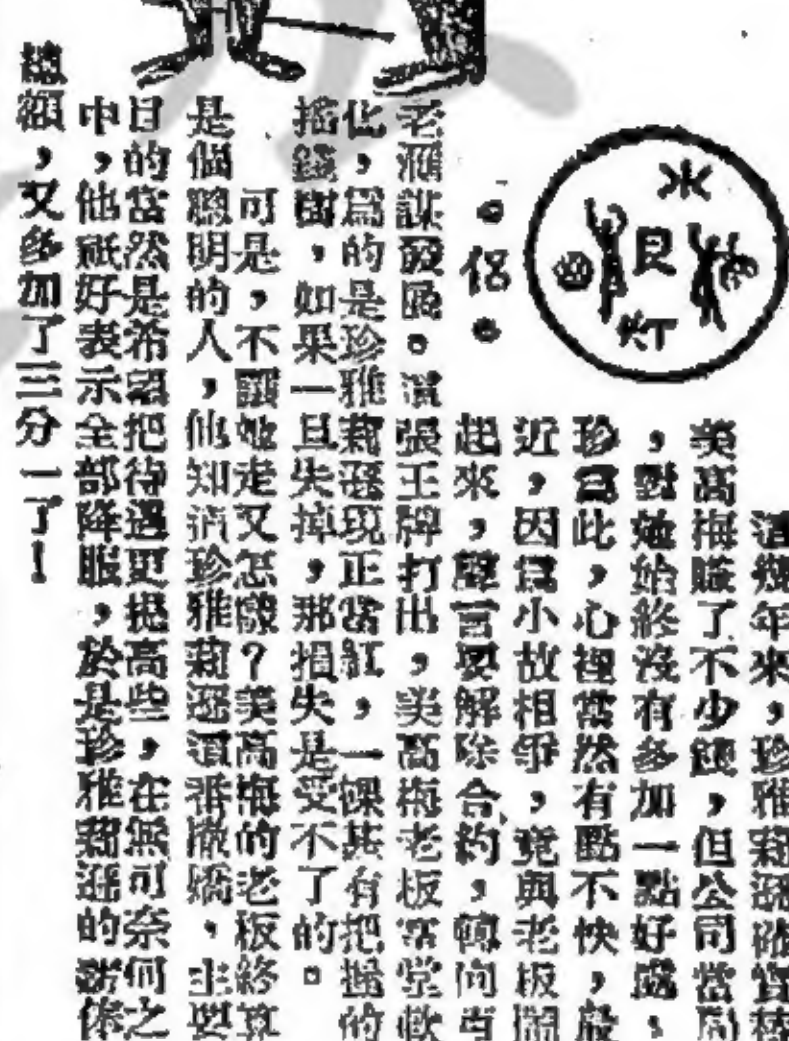 水銀灯
。侶。
這幾年來，珍雅莉遜替
美高梅賺了不少錢，但公司當局
，對她始終沒有多加一點好處，
珍為此，心裡當然有點不快，最
近，因為小故相爭，竟與老板鬧
起來，聲言要解除合約，轉向
老滙謀發展。這張王牌打出，美高梅老板當堂軟
化，為的是珍雅莉遜現正當紅，一棵具有把握的
搖錢樹，如果一旦失掉，那損失是受不了的。
可是，不讓她走又怎樣？美高梅的老板終算
是個聰明的人，他知道珍雅莉遜這番撒嬌，主要
目的當然是希望把待遇更提高些，在無可奈何之
中，他祇好表示全部降服，於是珍雅莉遜的
總額，又多加了三分一了！